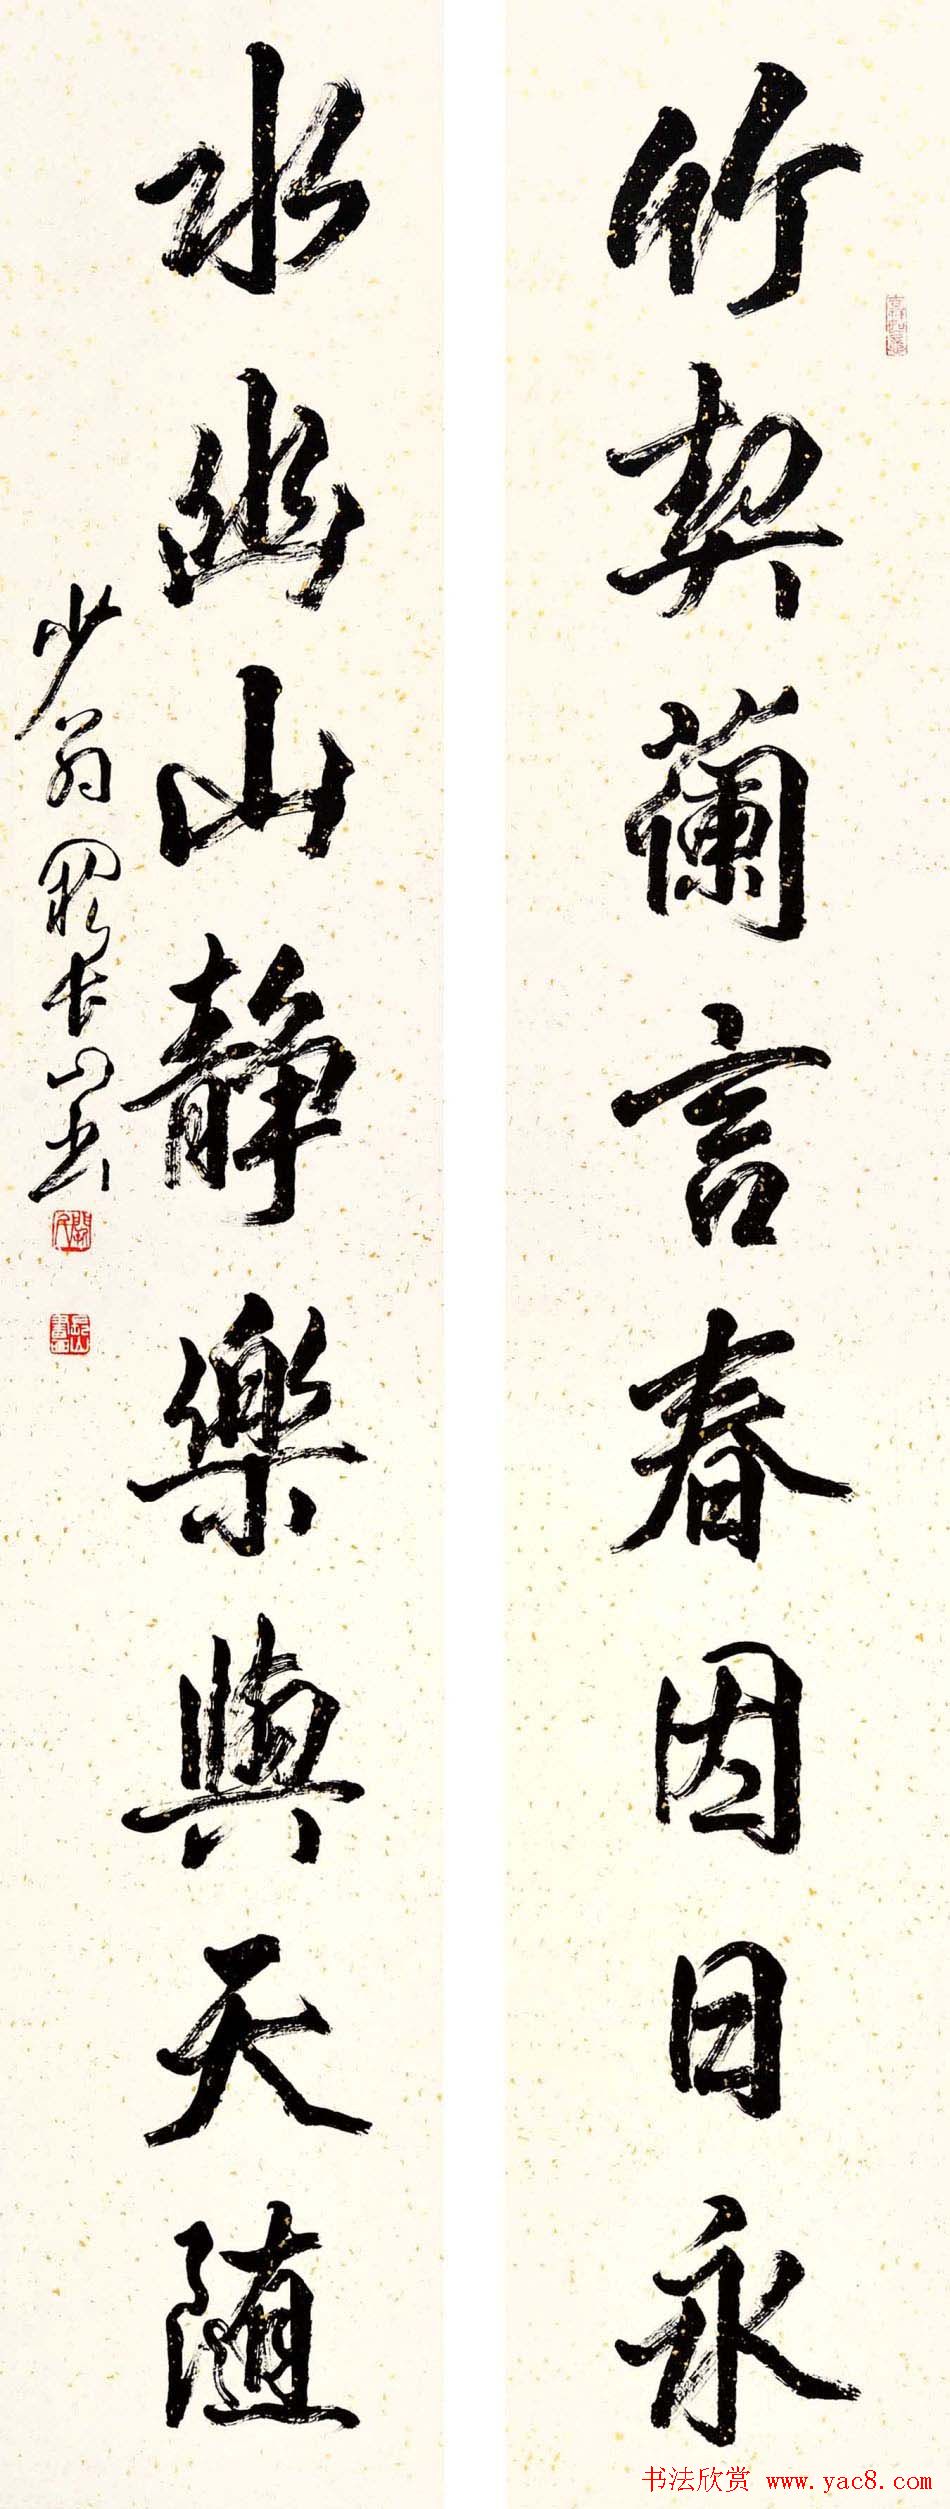 竹契蘭言春因日永
水幽山静樂與天随
少翁閻长山书
书法欣赏 www.yac8.com